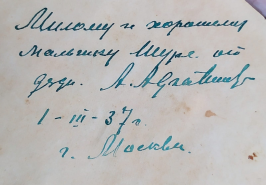 Милому и хорошему
мальчику Шуре от
дяди. А. А.
1 - III - 37 г.
г. Москва.